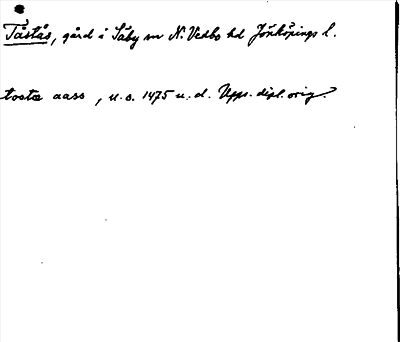 Tåstås, gård i Säby sn N. Vedbo hd Jönköpings l.
tostæ aass, u. o. 1475 u. d. Upps. dipl. orig.